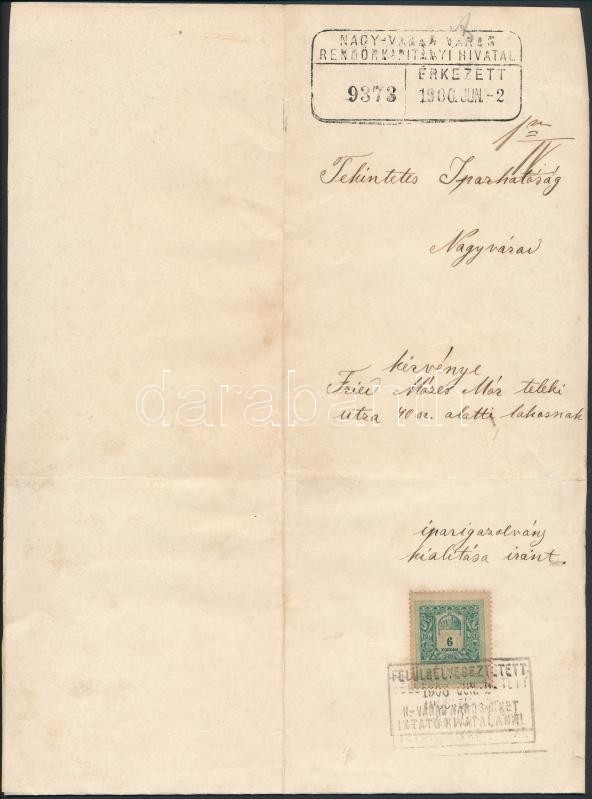 NAGY-VÁRAD VÁROS
RENDŐRKAPITÁNYI HIVATAL
ÉRKEZETT
9373 1906 JUN.-2
IV
Tekintetes Iparhatóság
Nagyvárad
kérvénye
Fried Mózes Mór teleki
utza 40 sz. alatti lakosnak
darabanth
iparigazolvány
kialitása iránt.
6
KORONA
FELÜLBÉLYEGEZTETETT
1906 JUN. 2
N-VÁRAD VÁROS
IKTATÓ HIVATALÁNÁL